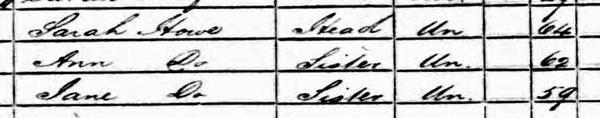 Sarah Howe Head Un 64
Ann Do Sister Un. 62
Jane Do Sister Un. 59